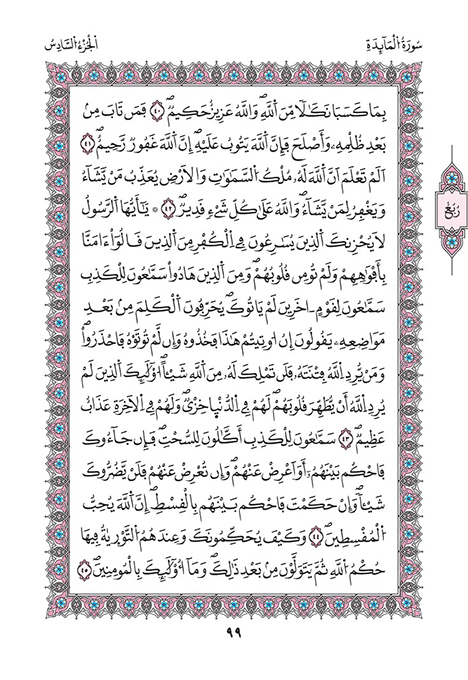 سُورَةُ الْمَآئِدَةِ
اَلْجُزْءُ السَّادِسُ
بِمَا كَسَبَا نَكَالًا مِّنَ اَللَّهِ وَاللَّهُ عَزِيزٌ حَكِيمٌ ٤٠ فَمَن تَابَ مِنۢ
بَعْدِ ظُلْمِهِۦ وَأَصْلَحَ فَإِنَّ اَللَّهَ يَتُوبُ عَلَيْهِ إِنَّ اَللَّهَ غَفُورٌ رَّحِيمٌ ٤١
اَلَمْ تَعْلَمَ اَنَّ اَللَّهَ لَهُۥ مُلْكُ اُلسَّمَٰوَٰتِ وَالَارْضِ يُعَذِّبُ مَنْ يَّشَآءُ
وَيَغْفِرُ لِمَنْ يَّشَآءُ وَاللَّهُ عَلَىٰ كُلِّ شَيْءٍ قَدِيرٌ ٤٢ يَٰٓأَيُّهَا اَلرَّسُولُ
لَا يُحْزِنكَ اَلذِينَ يُسَٰرِعُونَ فِي اِلْكُفْرِ مِنَ اَلذِينَ قَالُوٓاْ ءَامَنَّا
بِأَفْوَٰهِهِمْ وَلَمْ تُومِن قُلُوبُهُمْ وَمِنَ اَلذِينَ هَادُواْ سَمَّٰعُونَ لِلْكَذِبِ
سَمَّٰعُونَ لِقَوْمٍ اٰخَرِينَ لَمْ يَاتُوكَ يُحَرِّفُونَ اَلْكَلِمَ مِنۢ بَعْدِ
مَوَاضِعِهِۦ يَقُولُونَ إِنُ اوتِيتُمْ هَٰذَا فَخُذُوهُ وَإِن لَّمْ تُوتَوْهُ فَاحْذَرُواْ
وَمَنْ يُّرِدِ اِللَّهُ فِتْنَتَهُۥ فَلَن تَمْلِكَ لَهُۥ مِنَ اَللَّهِ شَيْـًٔا اُوْلَٰٓئِكَ اَلذِينَ لَمْ
يُرِدِ اِللَّهُ أَنْ يُّطَهِّرَ قُلُوبَهُمْ لَهُمْ فِي اِلدُّنْيَا خِزْيٌ وَلَهُمْ فِي اِلَاخِرَةِ عَذَابٌ
عَظِيمٌ ٤٣ سَمَّٰعُونَ لِلْكَذِبِ أَكَّٰلُونَ لِلسُّحْتِ فَإِن جَآءُوكَ
فَاحْكُم بَيْنَهُمُۥٓ أَوَ اَعْرِضْ عَنْهُمْ وَإِن تُعْرِضْ عَنْهُمْ فَلَنْ يَّضُرُّوكَ
شَيْـًٔا وَإِنْ حَكَمْتَ فَاحْكُم بَيْنَهُم بِالْقِسْطِ إِنَّ اَللَّهَ يُحِبُّ
اُلْمُقْسِطِينَ ٤٤ وَكَيْفَ يُحَكِّمُونَكَ وَعِندَهُمُ اُلتَّوْرَيٰةُ فِيهَا
حُكْمُ اُللَّهِ ثُمَّ يَتَوَلَّوْنَ مِنۢ بَعْدِ ذَٰلِكَ وَمَآ أُوْلَٰٓئِكَ بِالْمُومِنِينَ ٤٥
رُبُعٌ
٩٩